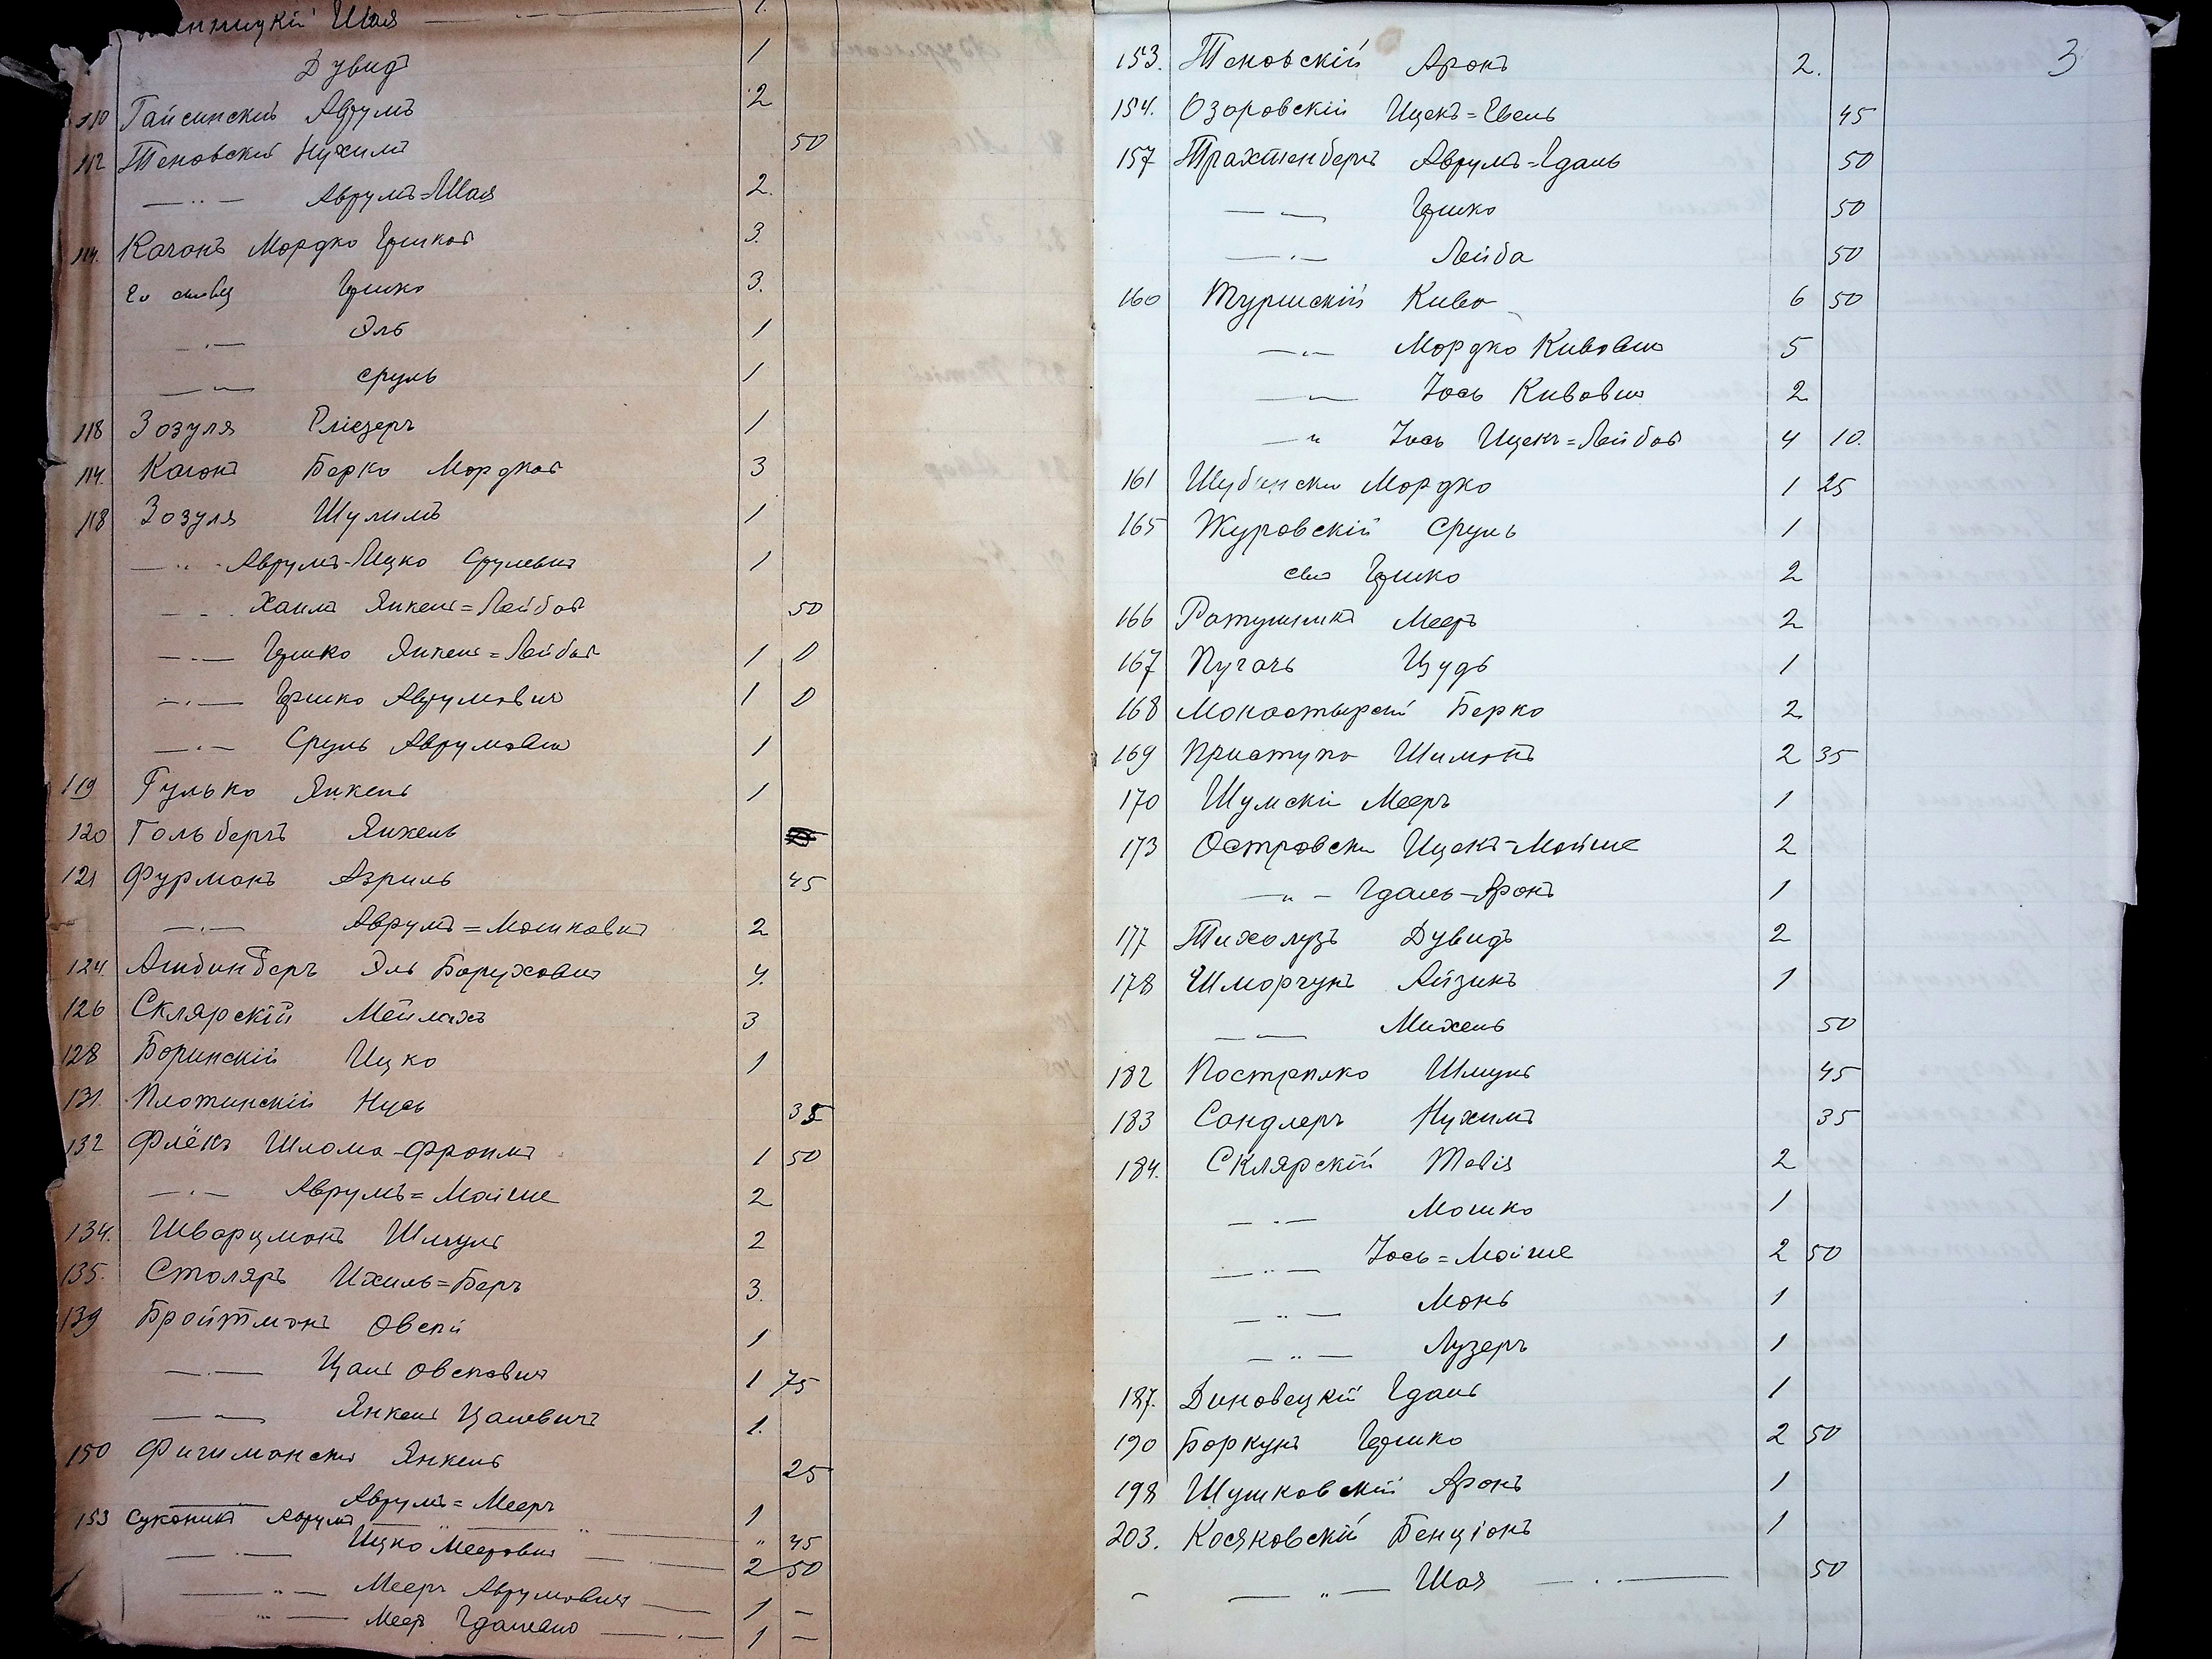 Шая 1.
Дувидъ 1
110 Гайсинскій Аврумъ 2
112 Теновскій Нухимъ 50
— " — Аврумъ=Шая 2.
114. Каганъ Мордко Гершков 3.
Его сынъ Гершко 3.
— " — Эль 1
— " — Сруль 1
118 Зозуля Еліезеръ 1
114. Каганъ Берко Мордков 3
118 Зозуля Шулимъ 1
— " — Аврумъ-Ицко Срулевич 1
— " — Хаимъ Янкель=Лейбов 50
— " — Гершко Янкель=Лейбов 1 0
— " — Гершко Аврумович 1 0
— " — Сруль Аврумович 1
119 Гулько Янкель 1
120 Гольбергъ Янкель
121 Фурманъ Азриль 45
— " — Аврумъ=Мошкович 2
124. Ашбинберъ Эль Борухович 4.
126 Склярскій Мейлахъ 3
128 Боринскій Ицко 1
131. Плотинскій Нусь 35
132 Флёкъ Шлома-Фроимъ 1 50
— " — Аврумъ=Мойше 2
134. Шварцманъ Шмуль 2
135. Столяръ Ихиль=Беръ 3.
139 Бройтманъ Овсей 1
— " — Цаль Овсеович 1 75
— " — Янкель Цалевичъ 1.
150 Фигимански Янкель 25
— Аврумъ=Мееръ 1
153 Суконикъ Аврумъ " 45
— " — Ицко Меерович — 2 50
— " — Мееръ Аврумович — 1 —
" — Меер Гдалевич — " — 1 —
3
153. Теновскій Аронъ 2.
154. Озаровскій Ицекъ=Евель 45
157 Трахтенбергъ Аврумъ=Гдаль 50
— " — Гершко 50
— " — Лейба 50
160 Туришскій Кива 6 50
— " — Мордко Кивович 5
— " — Іось Кивович 2
— " Іось Ицекъ=Лейбов 4 10.
161 Шубински Мордко 1 25
165 Журовскій Сруль 1
сын Гершко 2
166 Ратушникъ Мееръ 2
167 Пугачъ Иудъ 1
168 Монастырскій Берко 2
169 Приступа Шимонъ 2 35
170 Шумскій Мееръ 1
173 Островски Ицекъ-Мойше 2
— " — Гдаль-Аронъ 1
177 Тихолузъ Дувидъ 2
178 Шморгунъ Айзикъ 1
— " — Михель 50
182 Пострилко Шмуль 45
183 Сандлеръ Нухимъ 35
184. Склярскій Тевія 2
— " — Мошко 1
— " — Іось=Мойше 2 50
— " — Монь 1
— " — Лузеръ 1
187. Диновецкій Гдаль 1
190 Боркунъ Гершко 2 50
198 Шушковскій Аронъ 1
203. Косяковскій Бенціонъ 1
— " — Шая — " — 50